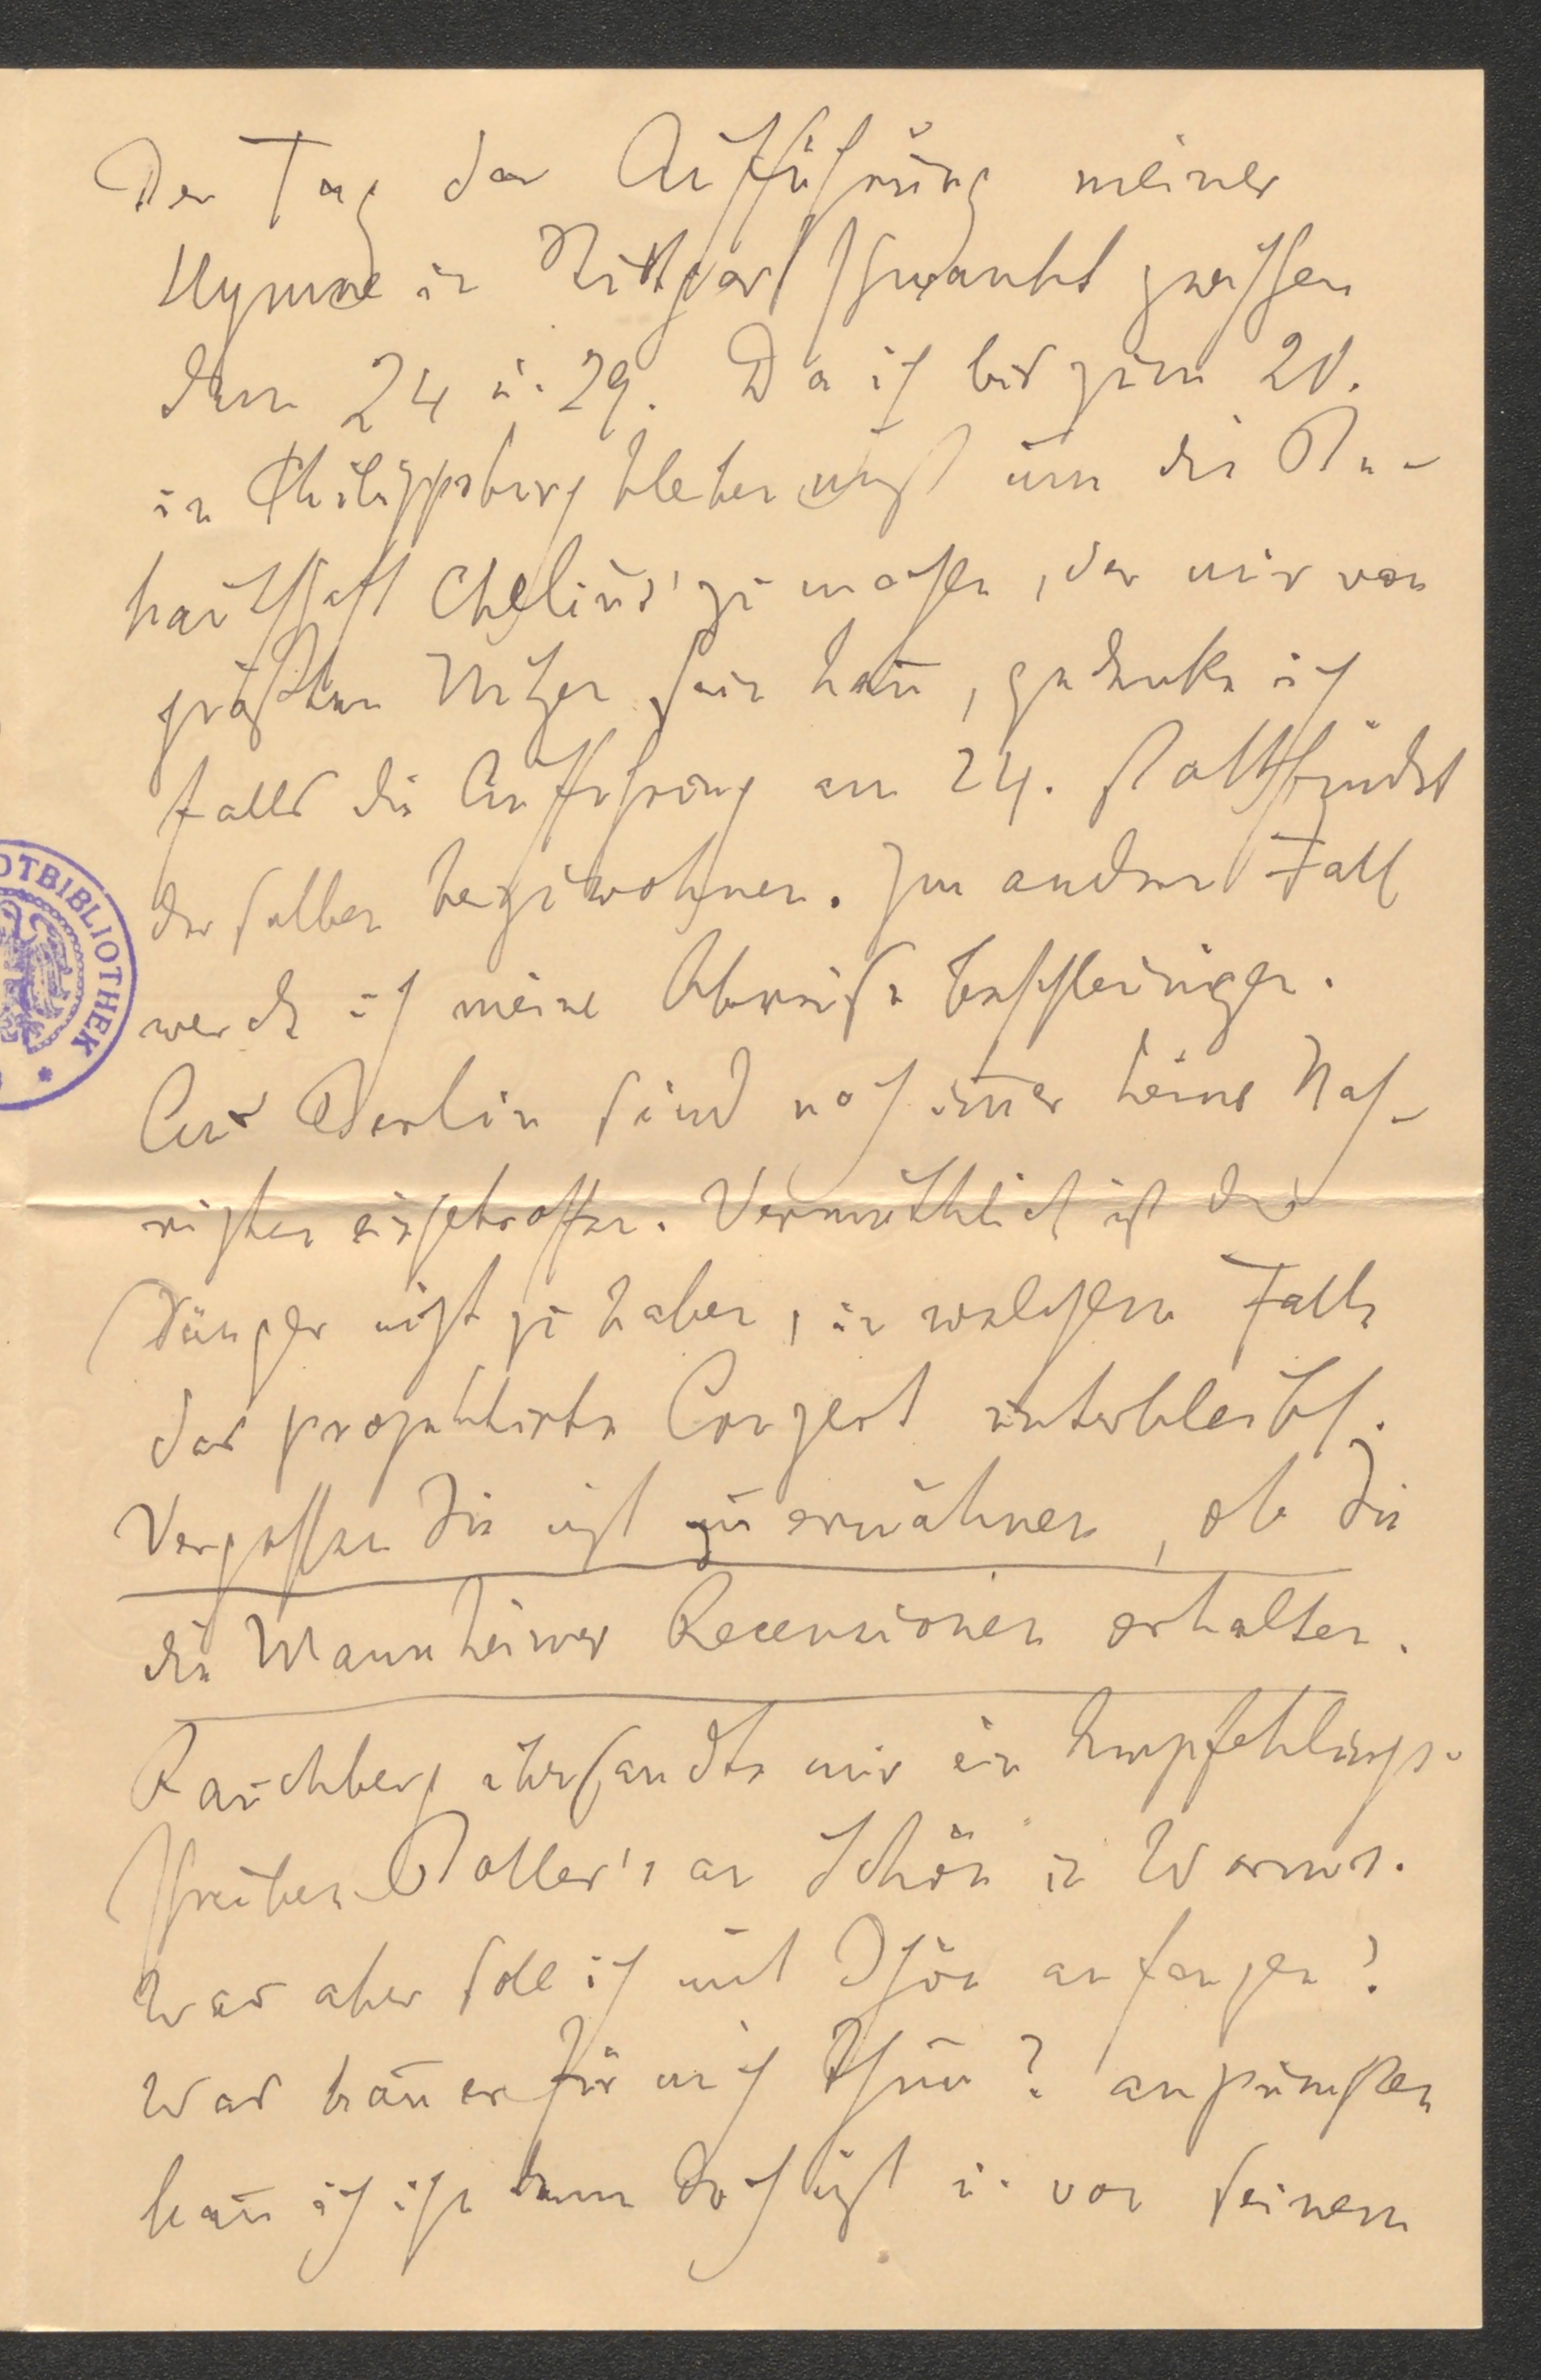 Der Tag der Aufführung meiner
Hymne in Stuttgart schwankt zwischen
dem 24 u. 29. Da ich bis zum 20.
in Philippsburg bleiben muß um die Be-
kanntschaft Chelius' zu machen, der mir von
größtem Nutzen sein kann, gedenke ich
falls die Aufführung am 24. stattfindet
derselben beizuwohnen. Im andern Fall
werde ich meine Abreise beschleunigen.
Aus Berlin sind noch immer keine Nach-
richten eingetroffen. Vermuthlich ist der
Sänger nicht zu haben, in welchem Falle
das projektirte Conzert unterbleibt.
Vergessen Sie nicht zu erwähnen, ob Sie
die Mannheimer Recensionen erhalten.
Rauchberg übersandte mir ein Empfehlungs-
schreiben Stoller's an Schön in Worms.
Was aber soll ich mit Schön anfangen?
Was kann er für mich thun? anpumpen
kann ich ihn denn doch nicht u. vor seinem
OTBIBLIOTHEK